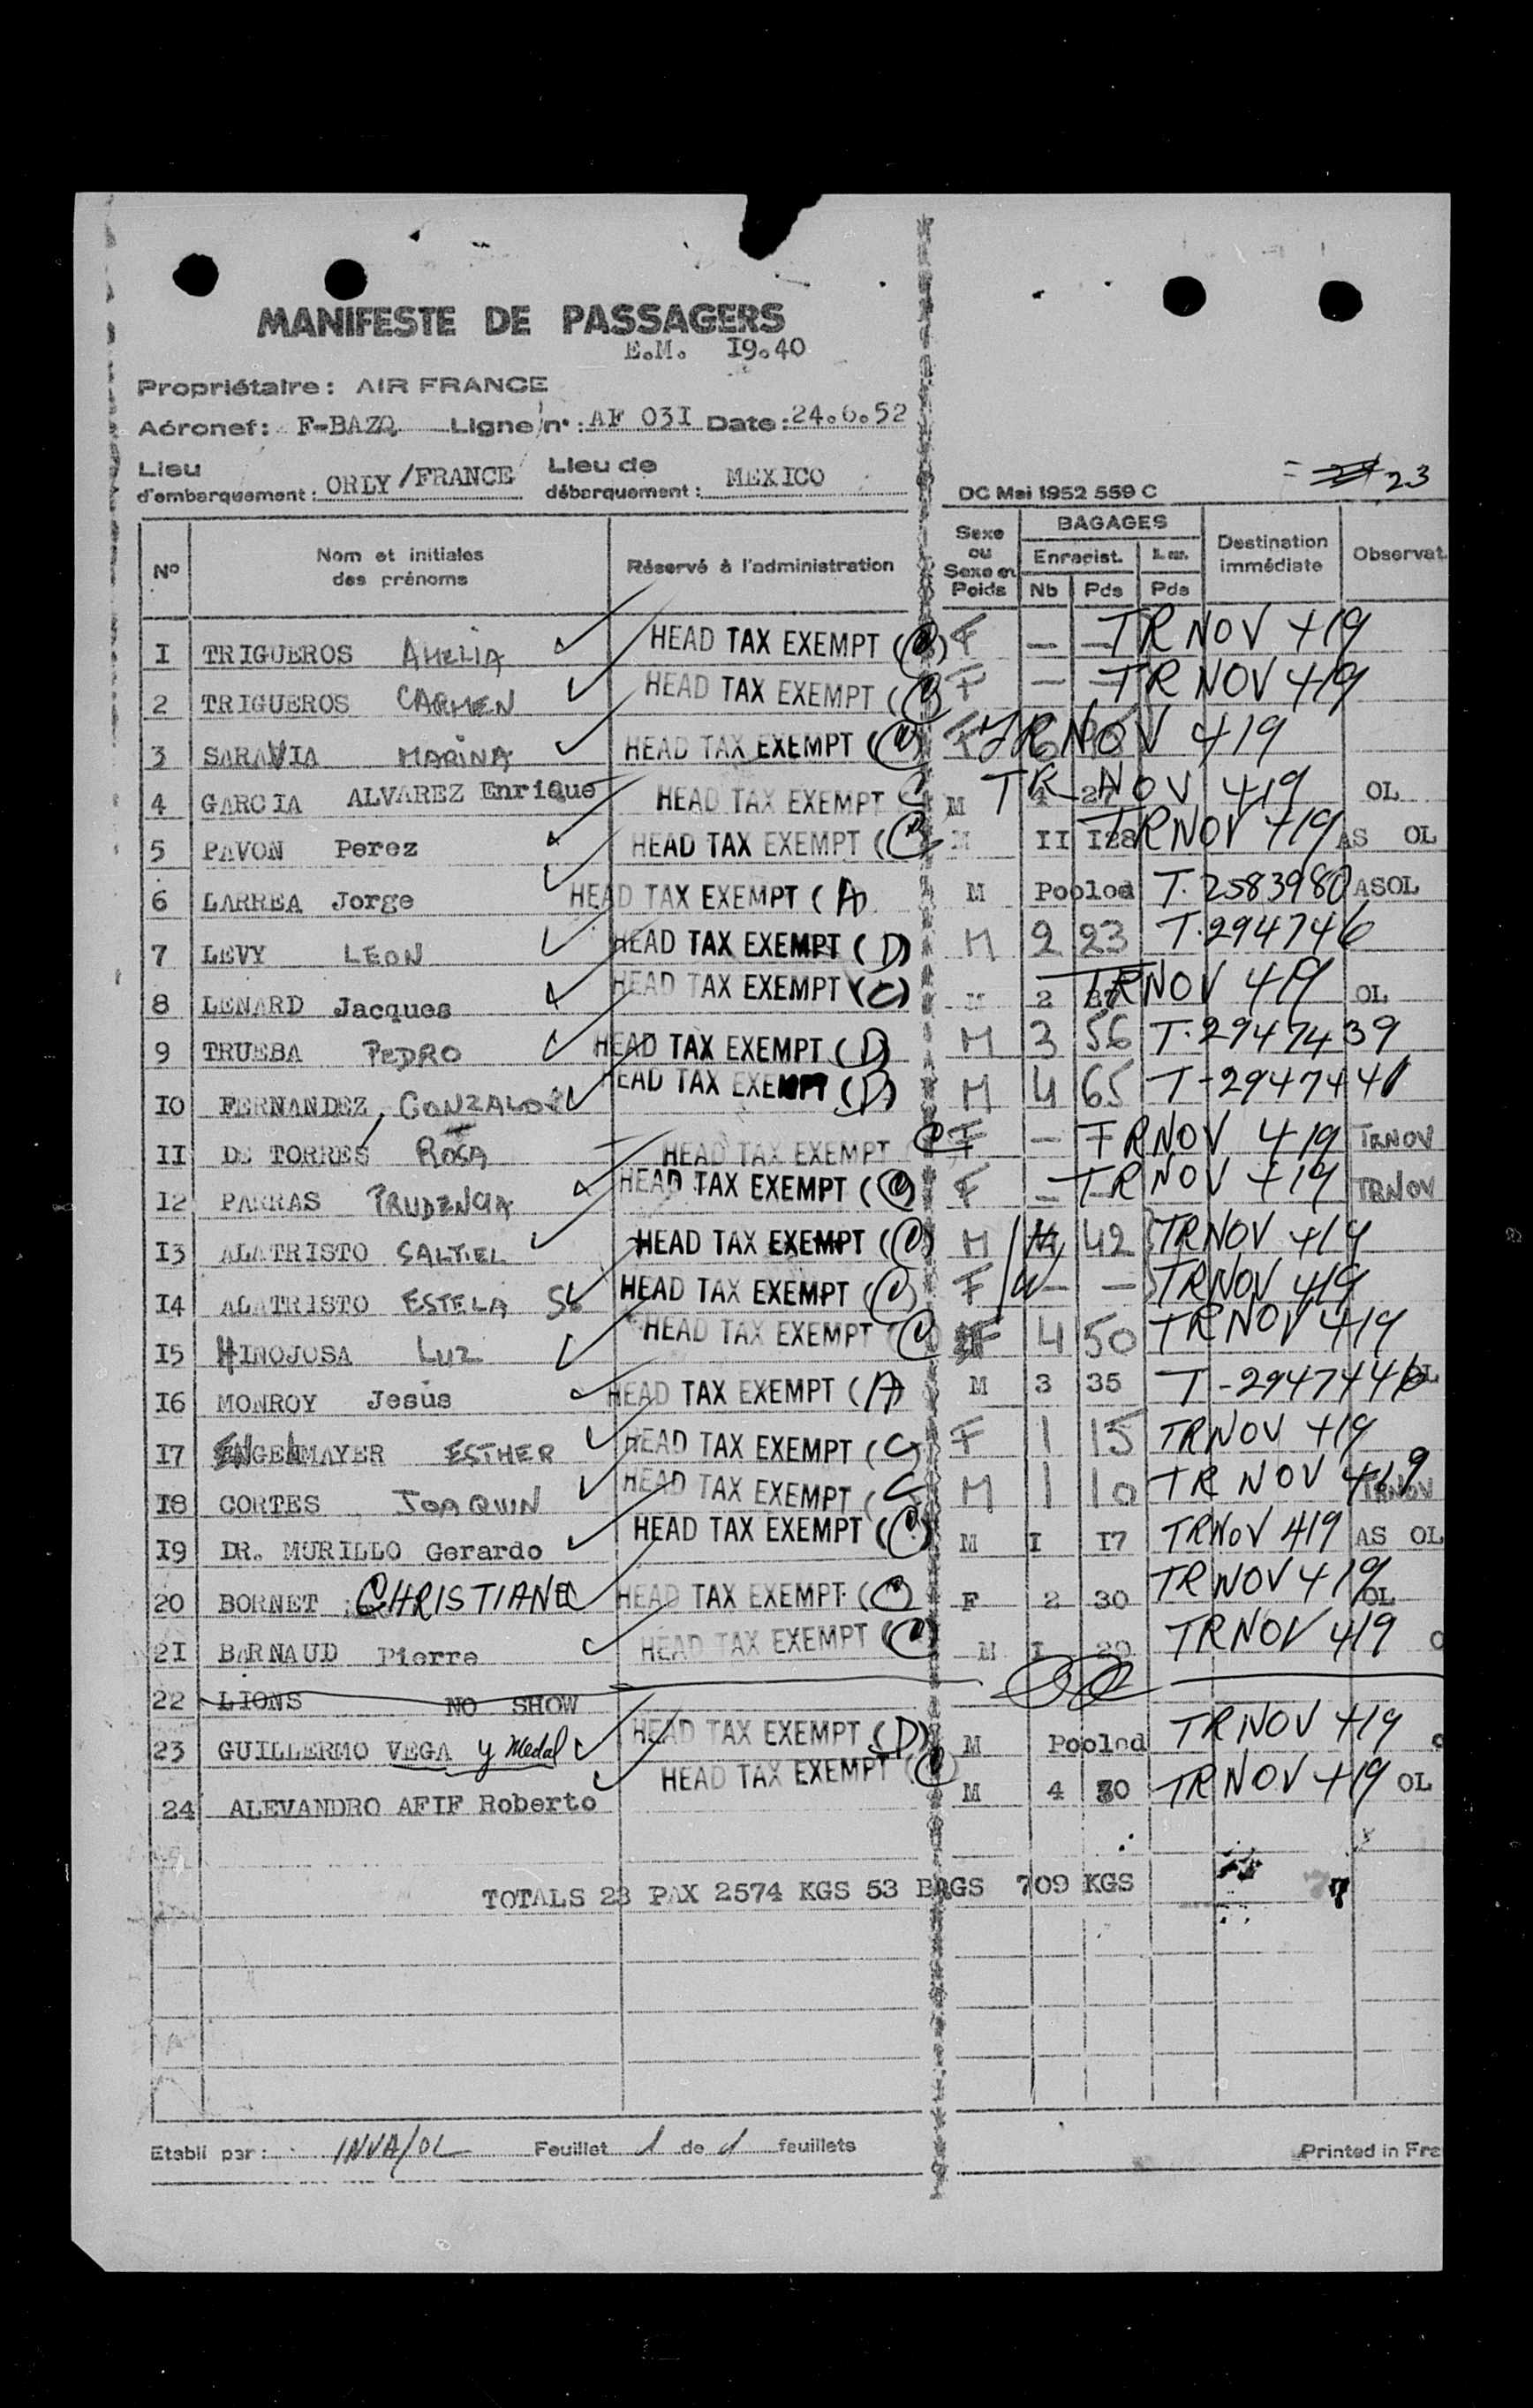 MANIFESTE DE PASSAGERS
E.M. I9.40
Propriétaire: AIR FRANCE
Aéronef: F-BAZQ Ligne n°: AF 03I Date: 24.6.52
Lieu d'embarquement: ORLY/FRANCE Lieu de débarquement: MEXICO
DC Mai 1952 559 C = 23
N° Nom et initiales des prénoms Réservé à l'administration Sexe ou Sexe en Poids BAGAGES Enregist. Nb Pds Pds Destination immédiate Observat.
I TRIGUEROS AMELIA HEAD TAX EXEMPT (C) F — — TRNOV 419
2 TRIGUEROS CARMEN HEAD TAX EXEMPT (C) F — — TRNOV 419
3 SARAVIA MARINA HEAD TAX EXEMPT (C) F TRNOV 419
4 GARCIA ALVAREZ Enrique HEAD TAX EXEMPT C M 4 27 TRNOV 419 OL
5 PAVON Perez HEAD TAX EXEMPT (C) M II I28 TRNOV 419 AS OL
6 LARREA Jorge HEAD TAX EXEMPT (A) M Pooled T.2583980 ASOL
7 LEVY LEON HEAD TAX EXEMPT (D) M 2 23 T.2947446
8 LENARD Jacques HEAD TAX EXEMPT (C) M 2 TRNOV 419 OL
9 TRUEBA PEDRO HEAD TAX EXEMPT (D) M 3 56 T.2947439
IO FERNANDEZ, GONZALO HEAD TAX EXEMPT (D) M 4 65 T-2947441
II DE TORRES ROSA HEAD TAX EXEMPT C F — TRNOV 419 TRNOV
I2 PARRAS PRUDENCIA HEAD TAX EXEMPT (C) F — TRNOV 419 TRNOV
I3 ALATRISTO SALTIEL HEAD TAX EXEMPT (C) M 42 TRNOV 419
I4 ALATRISTO ESTELA HEAD TAX EXEMPT (C) F — — TRNOV 419
I5 HINOJOSA LUZ HEAD TAX EXEMPT (C) F 4 50 TRNOV 419
I6 MONROY Jesùs HEAD TAX EXEMPT (A) M 3 35 T-2947440 OL
I7 ENGELMAYER ESTHER HEAD TAX EXEMPT (C) F 1 15 TRNOV 419
I8 CORTES JOAQUIN HEAD TAX EXEMPT (C M 1 10 TRNOV 419 TRNOV
I9 DR. MURILLO Gerardo HEAD TAX EXEMPT (C) M I I7 TRNOV 419 AS OL
20 BORNET CHRISTIANE HEAD TAX EXEMPT (C) F 2 30 TRNOV 419 OL
2I BARNAUD Pierre HEAD TAX EXEMPT (C) M I 20 TRNOV 419
22 LIONS NO SHOW
23 GUILLERMO VEGA y Medal HEAD TAX EXEMPT (D) M Pooled TRNOV 419
24 ALEVANDRO AFIF Roberto HEAD TAX EXEMPT (C) M 4 30 TRNOV 419 OL
TOTALS 23 PAX 2574 KGS 53 BAGS 709 KGS
Etabli par: INVA/OL Feuillet 1 de 1 feuillets Printed in Fra